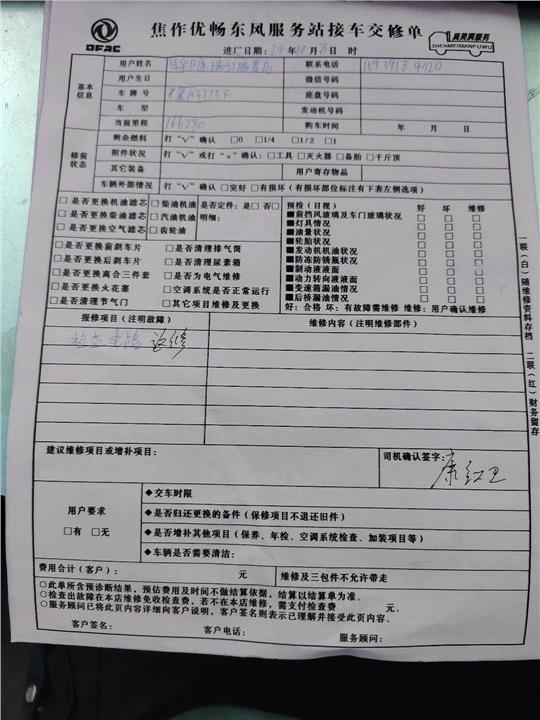 DFAC
焦作优畅东风服务站接车交修单
真美满服务
ZHENMEIMANFUWU
进厂日期：24年10月8日 时
基本信息
用户姓名 联系电话
用户生日 微信号码
车牌号 底盘号码
车型 发动机号码
当前里程 166280 购车时间 年 月 日
修前状态
剩余燃料 打“√”确认 □0 □1/4 □1/2 □1
附件状况 打“√”或打“×”确认：□工具 □灭火器 □备胎 □千斤顶
其它装备 用户寄存物品
车辆外部情况 打“√”确认 □完好 □有损坏（有损坏部位标注有下表左侧选项）
□是否更换机油滤芯 □柴油机油 □是否定件：是□ 否□
□是否更换柴油滤芯 □汽油机油 明细：
□是否更换空气滤芯 □齿轮油
□是否更换前刹车片 □是否清理排气筒
□是否更换后刹车片 □是否清理尿素箱
□是否更换离合三件套 □是否为电气维修
□是否更换火花塞 □空调系统是否正常运行
□是否清理节气门 □其它项目维修及更换
预检（目视） 好 坏 维修
■前挡风玻璃及车门玻璃状况 □ □ □
■灯具情况 □ □ □
■油量状况 □ □ □
■轮胎状况 □ □ □
■发动机机油状况 □ □ □
■防冻防锈瓶状况 □ □ □
■制动液液面 □ □ □
■动力转向液液面 □ □ □
■变速箱漏油情况 □ □ □
■后桥漏油情况 □ □ □
好：合格 坏：有故障需维修 维修：用户确认维修
报修项目（注明故障） 维修内容（注明维修部件）
检查电路 边修
建议维修项目或增补项目：
司机确认签字：
康红卫
用户要求
□有 □无
◆交车时限
◆是否归还更换的备件（保修项目不退还旧件）
◆是否增补其他项目（保养、年检、空调系统检查、加装项目等）
◆车辆是否需要清洁：
费用合计（客户）： 元 维修及三包件不允许带走
○此单所含预诊断结果，预估费用及时间不做结算依据，结算以结算单为准。
○检查出故障在本店维修免收检查费，若不在本店维修，需支付检查费 元。
○服务顾问已将此页内容详细向客户说明，客户签名则表示已理解并接受此页内容。
客户签名： 客户电话： 服务顾问：
一联（白）随维修资料存档 二联（红）财务留存